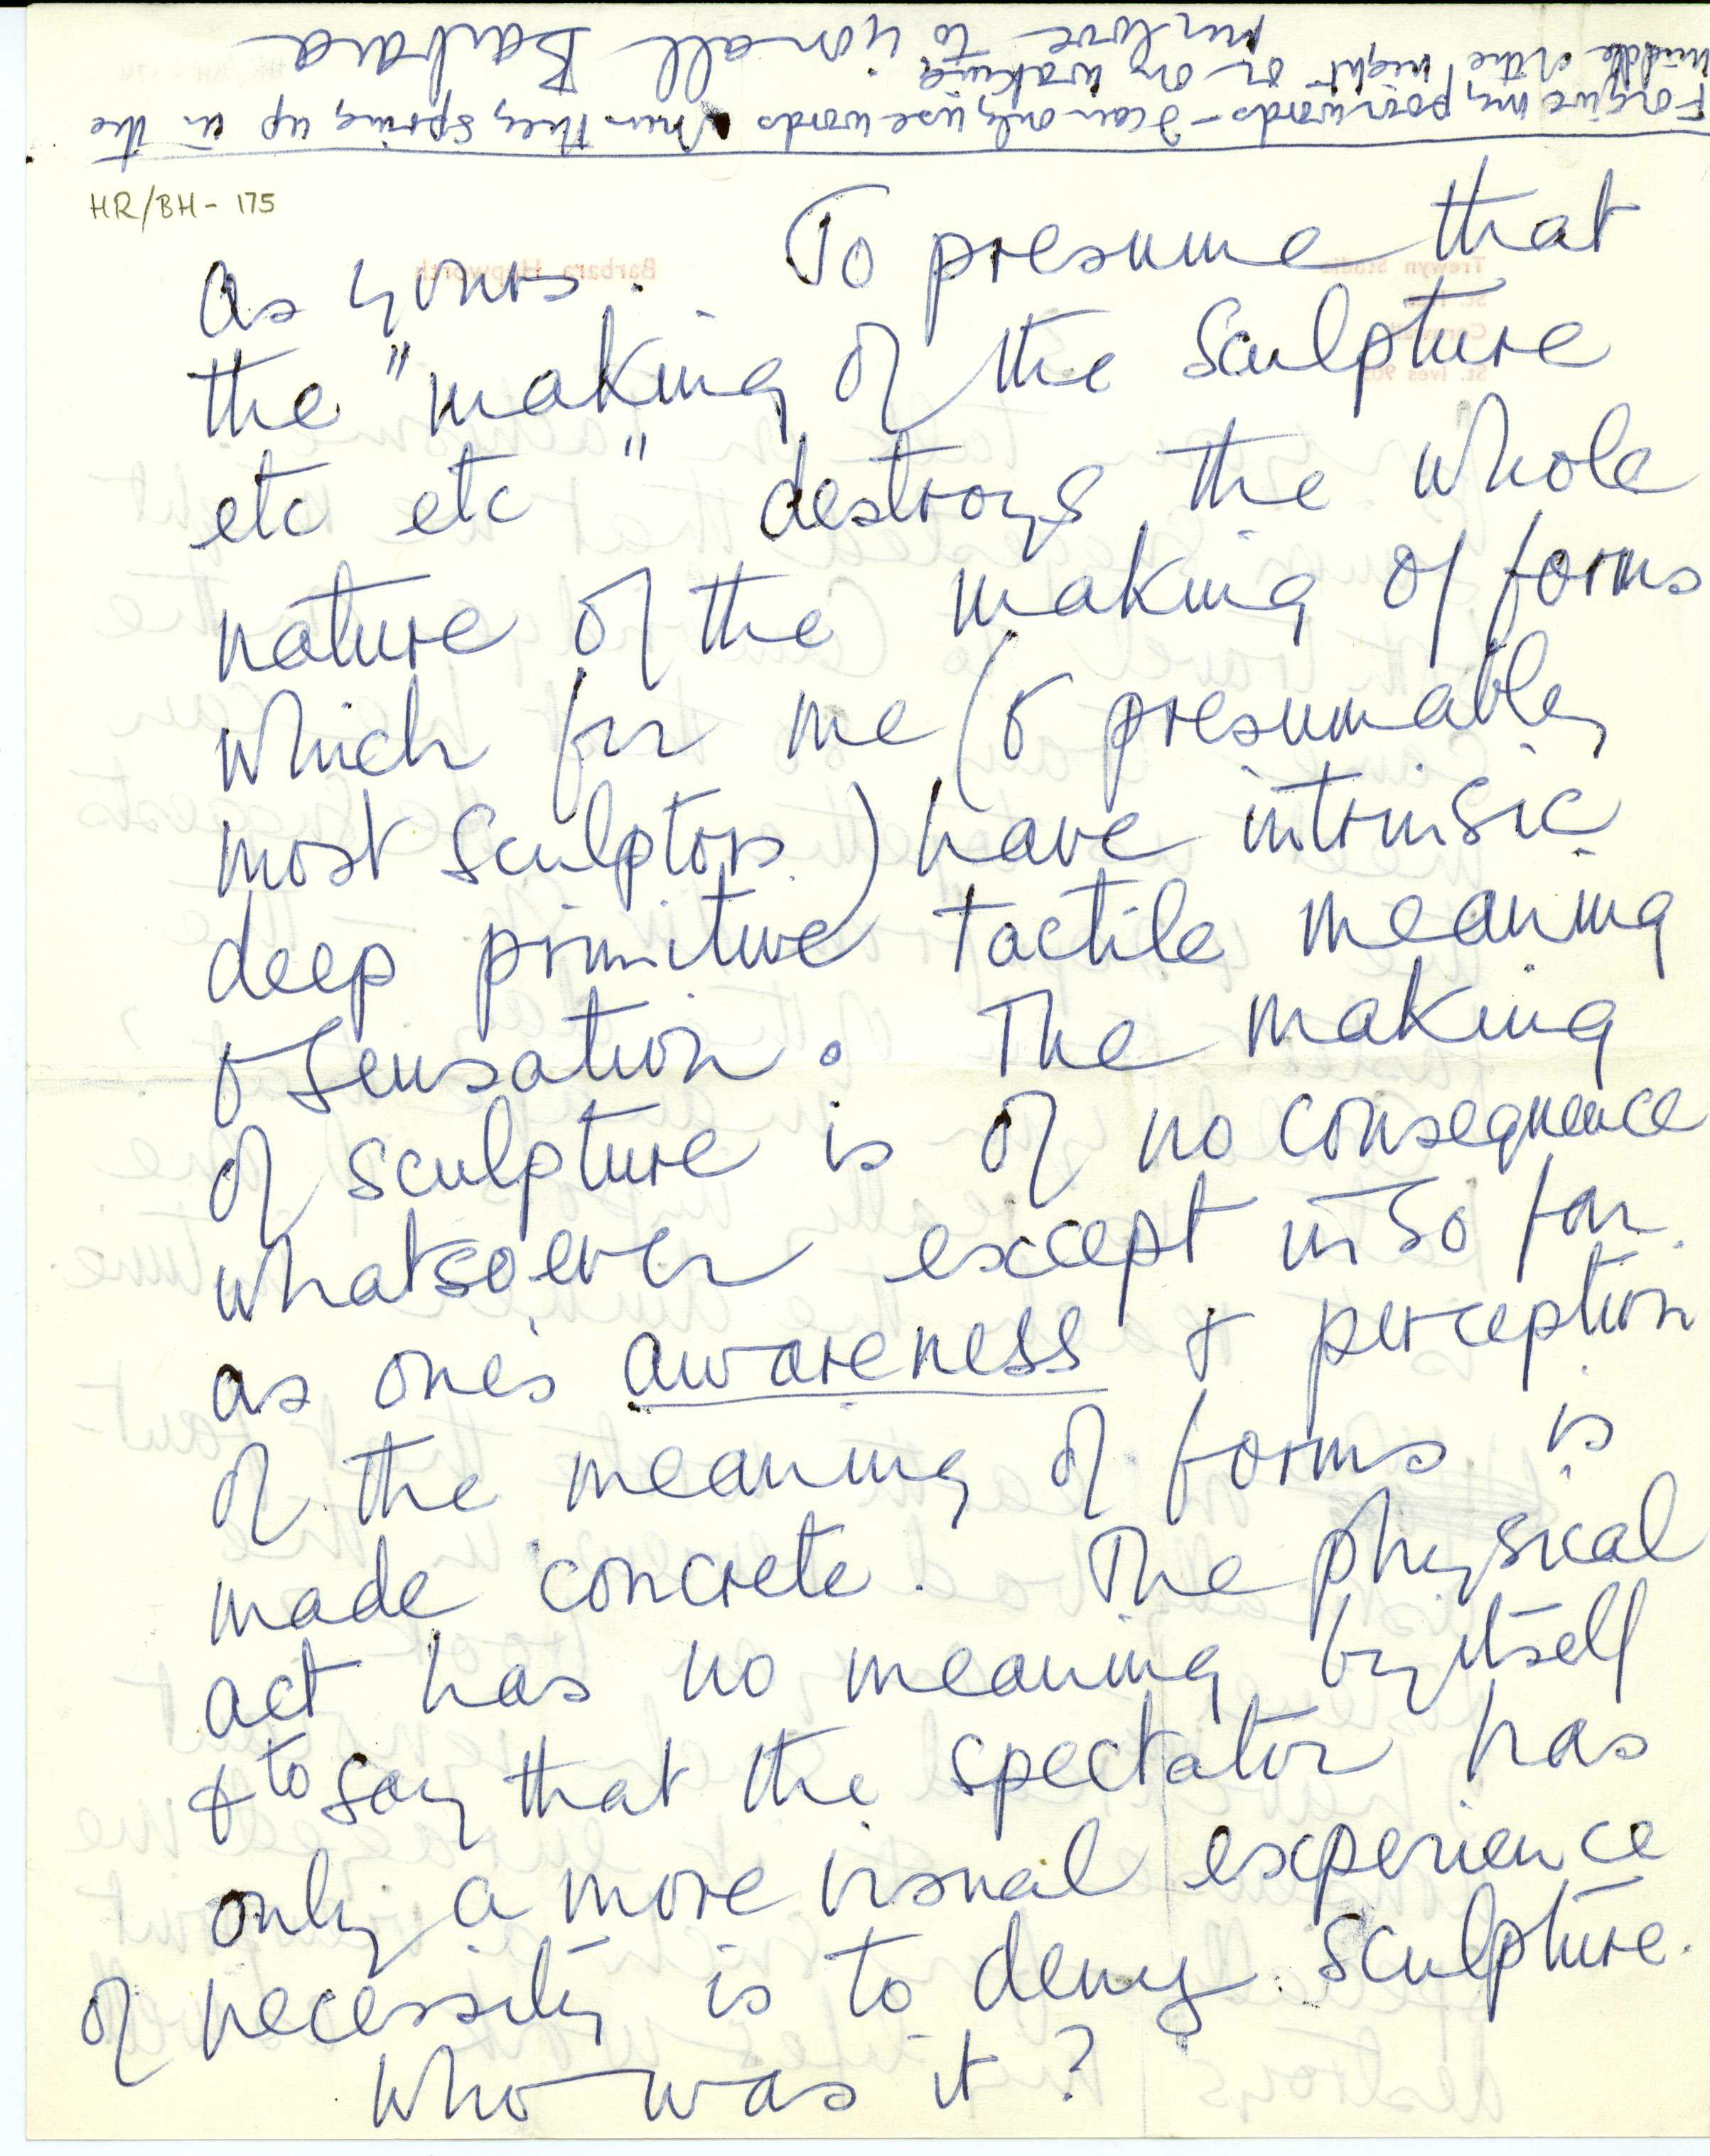 HR/BH - 175
as yours. To presume that
the "making of the sculpture
etc etc" destroys the whole
nature of the making of forms
which for me (& presumably
most sculptors) have intrinsic
deep primitive tactile meaning
& sensation. The making
of sculpture is of no consequence
whatsoever except in so far
as one's awareness & perception
of the meaning of forms is
made concrete. The physical
act has no meaning by itself
& to say that the spectator has
only a more visual experience
of necessity is to deny sculpture.
Who was it?
Forgive my poor words - I can only use words when they spring up in the
middle of the night or on waking
love to you all Barbara